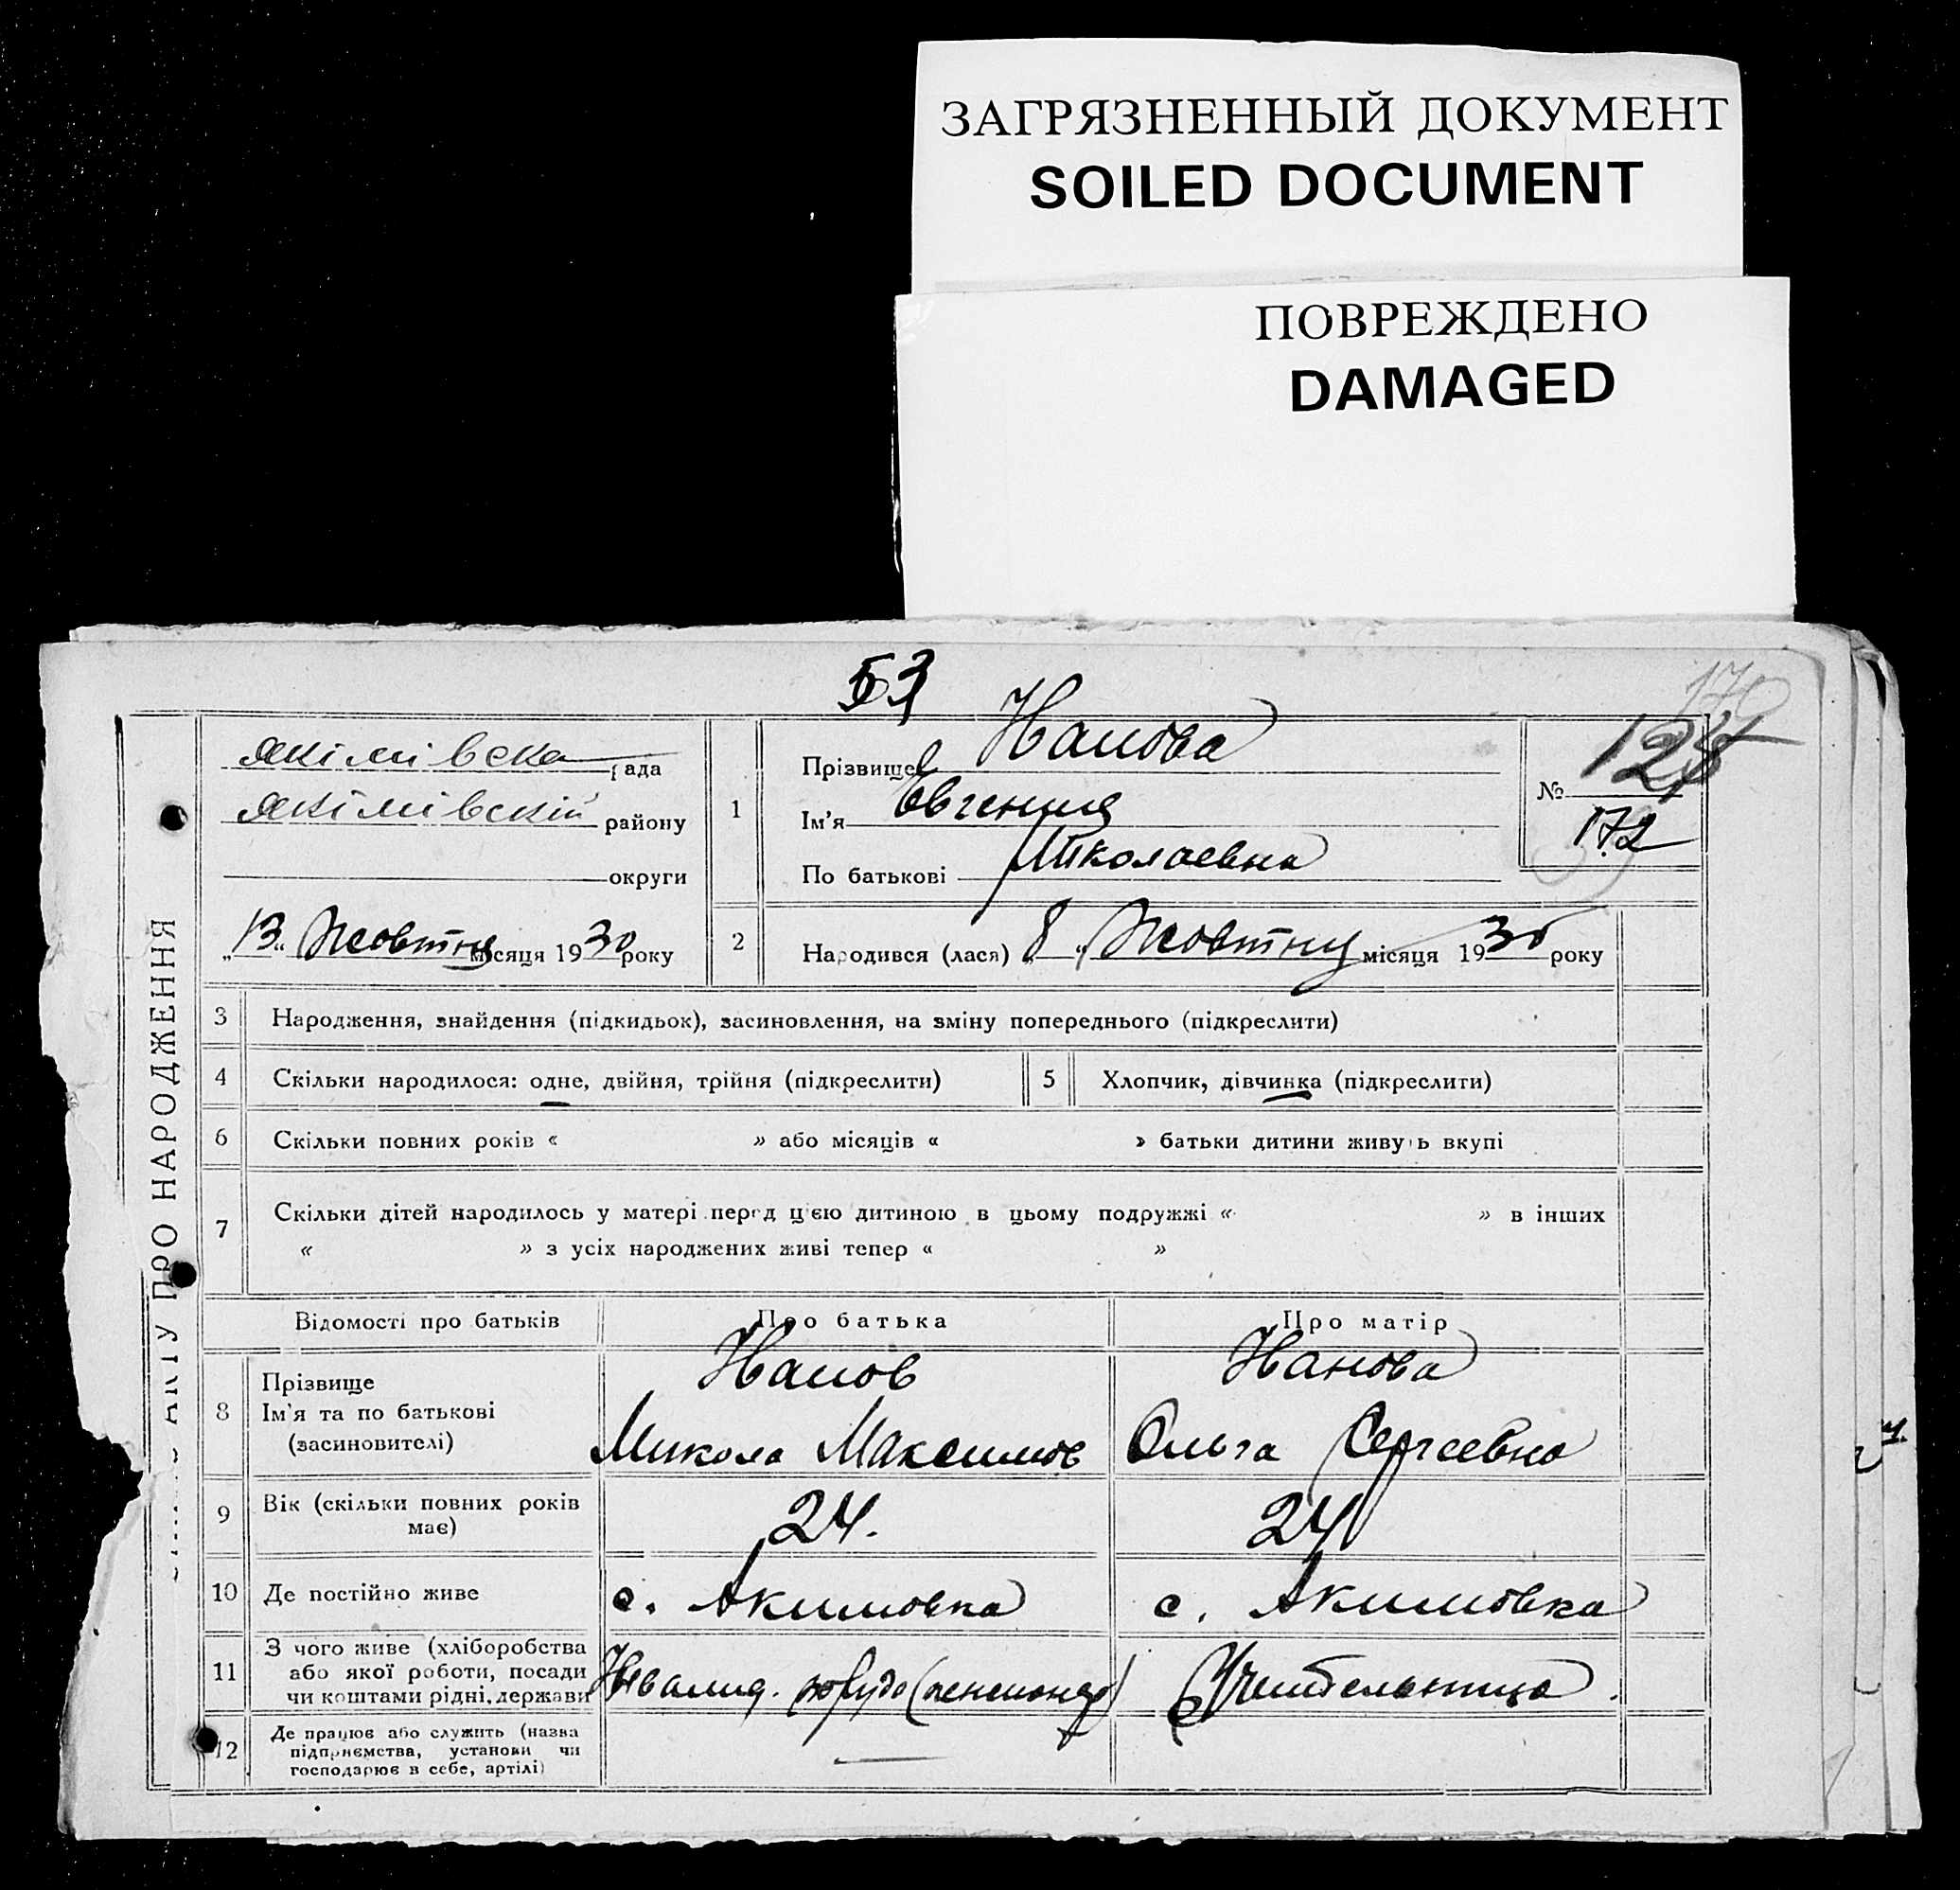 ЗАГРЯЗНЕННЫЙ ДОКУМЕНТ
SOILED DOCUMENT
ПОВРЕЖДЕНО
DAMAGED
53
170
ПРО НАРОДЖЕННЯ
Якімівська рада
Якімівскій району
округи
„13“ Жовтня місяця 1930 року
1
Прізвище Нанова
Ім'я Евгения
По батькові Миколаевна
№ 128
172
2
Народився (лася) „8“ Жовтня місяця 1930 року
3 Народження, знайдення (підкидьок), засиновлення, на зміну попереднього (підкреслити)
4 Скільки народилося: одне, двійня, трійня (підкреслити)
5 Хлопчик, дівчинка (підкреслити)
6 Скільки повних років « » або місяців « » батьки дитини живуть вкупі
7 Скільки дітей народилось у матері перед цією дитиною в цьому подружжі « » в інших
« » з усіх народжених живі тепер « »
Відомості про батьків
Про батька
Про матір
8
Прізвище
Ім'я та по батькові
(засиновителі)
Нанов
Микола Максимов
Нанова
Ольга Сергеевна
9
Вік (скільки повних років
має)
24.
24
10 Де постійно живе
с. Акимовка
с. Акимовка
11
З чого живе (хліборобства
або якої роботи, посади
чи коштами рідні, держави
Инвалид. труда (пенсионер)
Учительница.
12
Де працює або служить (назва
підприємства, установи чи
господарює в себе, артілі)